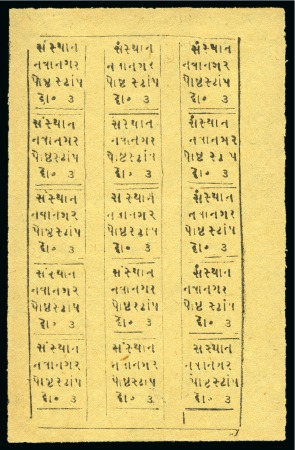 સંસ્થાન
નવાનગર
પોષ્ટ સ્ટાંપ
દો૦ ૩
સંસ્થાન
નવાનગર
પોષ્ટ સ્ટાંપ
દો૦ ૩
સંસ્થાન
નવાનગર
પોષ્ટ સ્ટાંપ
દો૦ ૩
સંસ્થાન
નવાનગર
પોષ્ટ સ્ટાંપ
દો૦ ૩
સંસ્થાન
નવાનગર
પોષ્ટ સ્ટાંપ
દો૦ ૩
સંસ્થાન
નવાનગર
પોષ્ટ સ્ટાંપ
દો૦ ૩
સંસ્થાન
નવાનગર
પોષ્ટ સ્ટાંપ
દો૦ ૩
સંસ્થાન
નવાનગર
પોષ્ટ સ્ટાંપ
દો૦ ૩
સંસ્થાન
નવાનગર
પોષ્ટ સ્ટાંપ
દો૦ ૩
સંસ્થાન
નવાનગર
પોષ્ટ સ્ટાંપ
દો૦ ૩
સંસ્થાન
નવાનગર
પોષ્ટ સ્ટાંપ
દો૦ ૩
સંસ્થાન
નવાનગર
પોષ્ટ સ્ટાંપ
દો૦ ૩
સંસ્થાન
નવાનગર
પોષ્ટ સ્ટાંપ
દો૦ ૩
સંસ્થાન
નવાનગર
પોષ્ટ સ્ટાંપ
દો૦ ૩
સંસ્થાન
નવાનગર
પોષ્ટ સ્ટાંપ
દો૦ ૩